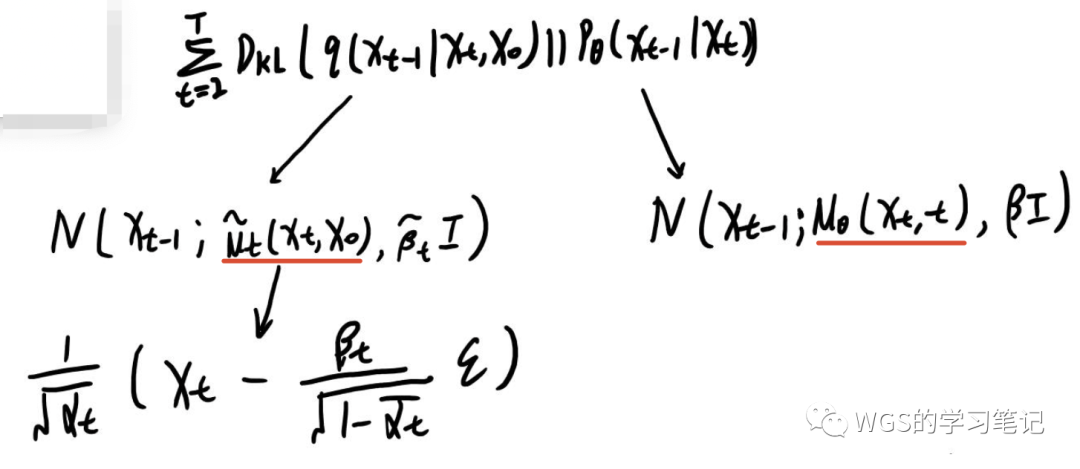 ∑_{t=2}^{T} D_{KL}(q(x_{t-1}|x_t,x_0)||P_θ(x_{t-1}|x_t))
N(x_{t-1}; μ̃_t(x_t,x_0), β̃_t I)
N(x_{t-1}; μ_θ(x_t,t), βI)
1/√α_t (x_t - β_t/√(1-ᾱ_t) ε)
WGS的学习笔记